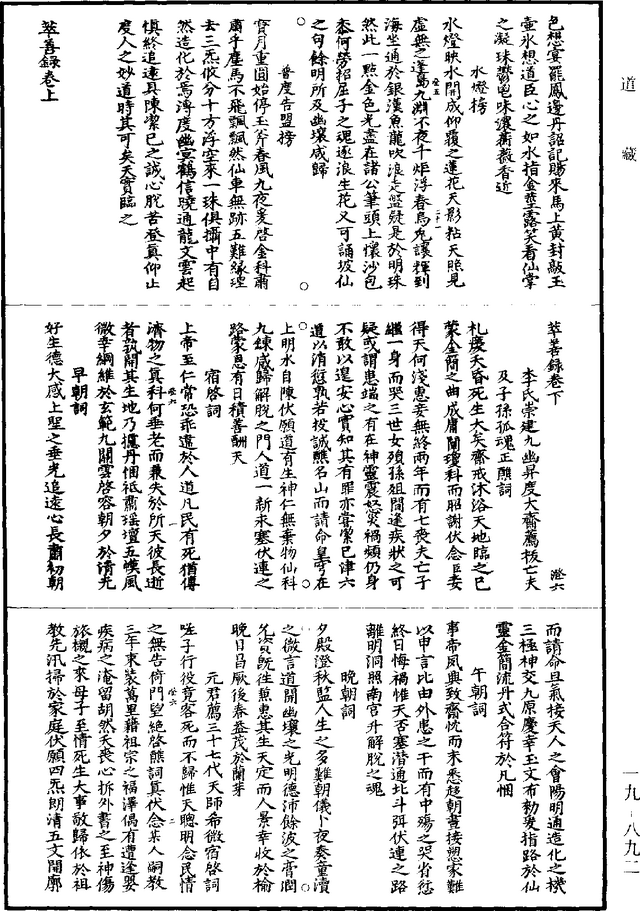 道藏
色想宴罷鳳邊丹詔記賜來馬上黃封敲玉
壺氷想道臣心之如水指金莖露笑看仙掌
之凝珠鬱鬯味濃薔薇香近
水燈榜
水燈映水開成仰覆之蓮花天影粘天照見
虛無之蓬島九淵不夜千炬浮春烏兔讓輝到
海坐通於銀漢魚龍吹浪走盤疑是於明珠
然此一點金色光盡在諸公筆頭上懷沙包
黍何勞招屈子之魂逐浪生花又可誦坡仙
之句餘明所及幽壤咸歸
普度告盟榜
寶月重圓始停玉斧春風九夜爰啓金科肅
肅乎塵馬不飛飄飄然仙車無跡五難緣瑝
去三炁攸分十方浮空來一珠俱攝中有自
然造化於焉溥度幽冥鶴信曉通龍文雲起
慎終追遠具陳潔已之誠心脫苦登真仰止
度人之妙道時其可矣天實臨之
萃善錄卷上
萃善錄卷下
李氏崇建九幽昇度大齋薦拔亡夫
及子孫孤魂正醮詞
禮慶天昏死生大矣齋戒沐浴天地臨之已
蒙金簡之曲咸肅闡瓊科而昭謝伏念臣妾
得天何淺惠妾無終兩年而有七喪夫亡子
繼一身而哭三世女殞孫殂間逢疾狀之可
疑或謂患端之有在神靈震怒災禍頻仍身
不敢以遑安心實知其有罪亦嘗索已津六
道以消愆孰若投誠醮名山而請命皇穹在
上明水自陳伏願道有生神仁無棄物仙科
九鍊咸歸解脫之門人道一新永塞伏連之
路蒙恩有日積善酬天
宿啓詞
上帝至仁常恐乖違於人道凡民有死猶傳
濟物之真科何垂老而兼失於所天彼長逝
者孰開其生地乃攄丹悃祗肅瑤壇五悮風
微幸綱維於玄範九關雲啓容朝夕於清光
早朝詞
好生德大感上聖之垂光追遠心長肅初朝
而請命且氣接天人之會陽明通造化之機
三極神交九原慶幸玉文布勑爰指路於仙
靈金簡流丹式合符於凡悃
午朝詞
事帝夙興致齋忱而未悉趍朝晝接愬家難
以申言比由外患之干而有中殤之哭省愆
終日悔禍惟天否塞潛通北斗弭伏連之路
離明洞照南宮升解脫之魂
晚朝詞
夕殿澄秋監人生之多難朝儀卜夜奏童瀆
之微言道開幽壤之光明德沛餘波之膏潤
允資既徃亷惠其生天定而人景幸收於榆
晚日昌厥後春益茂於蘭芽
元君薦三十七代天師希微宿啓詞
嗟子行役竟客死而不歸惟天聰明念民情
之無告荷門望絕啓醮詞真伏念某人嗣教
三年東裝萬里藉祖宗之福澤偶有遭逢嬰
疾病之淹留胡然天喪心折外書之至神傷
旅櫬之來母子至情死生大事敬歸依於祖
教先汛掃於家庭伏願四炁朗清五文開廓
一九-八九二